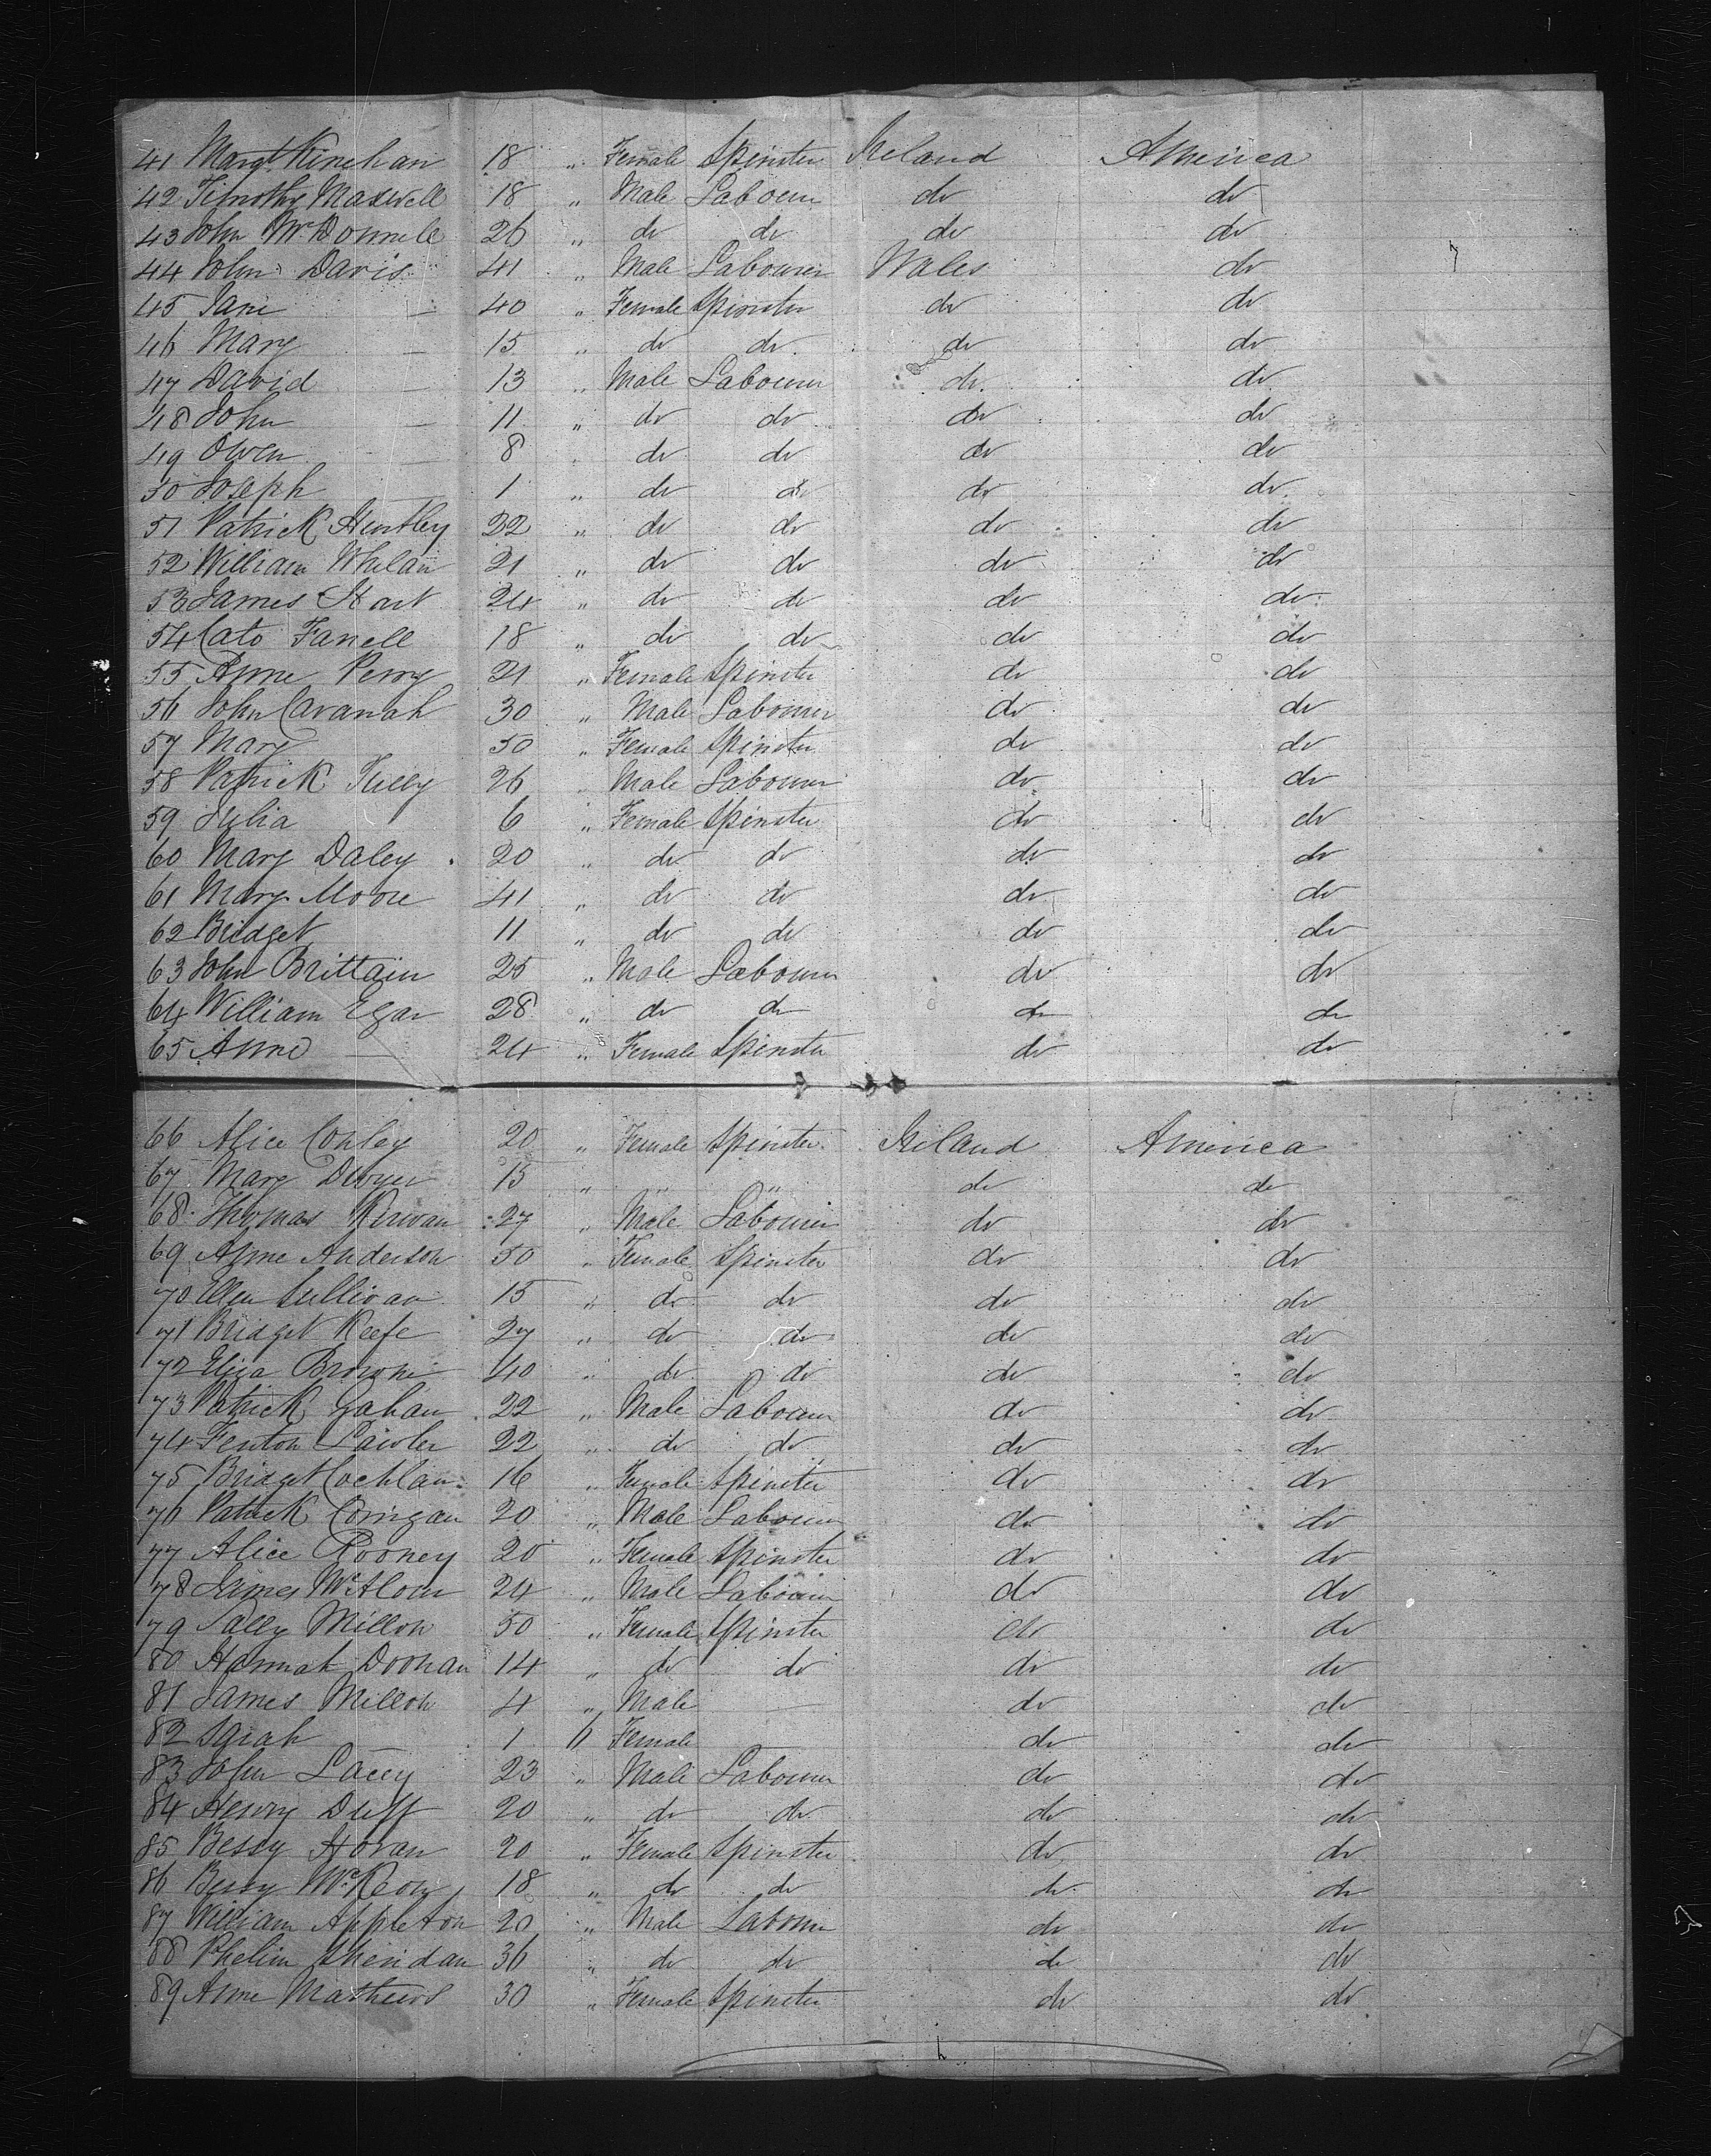 41 Margt Kinehan 18 " Female Spinster Ireland America
42 Timothy Maxwell 18 " Male Labourer do do
43 John McDonnell 26 " do do do do
44 John Davis 41 " Male Labourer Wales do
45 Jane — 40 " Female Spinster do do
46 Mary — 15 " do do do do
47 David — 13 " Male Labourer do do
48 John — 11 " do do do do
49 Owen — 8 " do do do do
50 Joseph — 1 " do do do do
51 Patrick Huntley 22 " do do do do
52 William Whelan 21 " do do do do
53 James Hart 24 " do do do do
54 Cato Farrell 18 " do do do do
55 Anne Perry 21 " Female Spinster do do
56 John Cavanah 30 " Male Labourer do do
57 Mary 50 " Female Spinster do do
58 Patrick Tully 26 " Male Labourer do do
59 Julia 6 " Female Spinster do do
60 Mary Daley 20 " do do do do
61 Mary Moore 41 " do do do do
62 Bridget 11 " do do do do
63 John Brittain 25 " Male Labourer do do
64 William Egan 28 " do do do do
65 Anne — 24 " Female Spinster do do
66 Alice Conley 20 " Female Spinster Ireland America
67 Mary Dwyer 15 " " " do do
68 Thomas Kirwan 27 " Male Labourer do do
69 Anne Anderson 50 " Female Spinster do do
70 Ellen Sullivan 15 " do do do do
71 Bridget Keefe 27 " do do do do
72 Eliza Browne 40 " do do do do
73 Patrick Gahan 22 " Male Labourer do do
74 Fenton Lawler 22 " do do do do
75 Bridget Cochlan 16 " Female Spinster do do
76 Patrick Corrigan 20 " Male Labourer do do
77 Alice Rooney 20 " Female Spinster do do
78 James 24 " Male Labourer do do
79 Sally Millon 50 " Female Spinster do do
80 Hannah Doonan 14 " do do do do
81 James Millon 4 " Male — do do
82 Sarah 1 " Female — do do
83 John Lacey 23 " Male Labourer do do
84 Henry Duff 20 " do do do do
85 Bessy Horan 20 " Female Spinster do do
86 Bessy McKeon 18 " do do do do
87 William Appleton 20 " Male Labourer do do
88 Phelim Sheridan 36 " do do do do
89 Anne Mathews 30 " Female Spinster do do